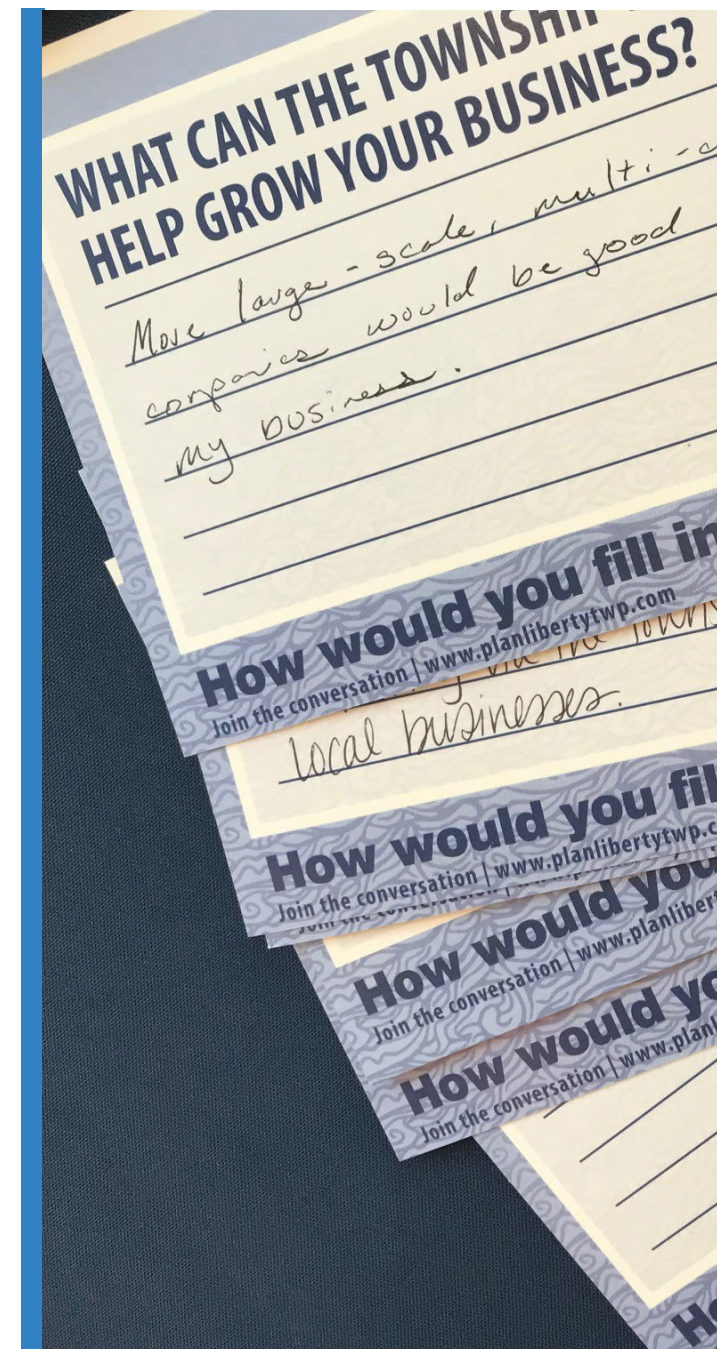 WHAT CAN THE TOWNSHIP
HELP GROW YOUR BUSINESS?
More large-scale, multi-c
companies would be good
my business.
How would you fill in
Join the conversation | www.planlibertytwp.com
via the
local businesses.
How would you fil
Join the conversation | www.planlibertytwp.c
How would you
Join the conversation | www.planliber
How would yo
Join the conversation | www.planl
Ho